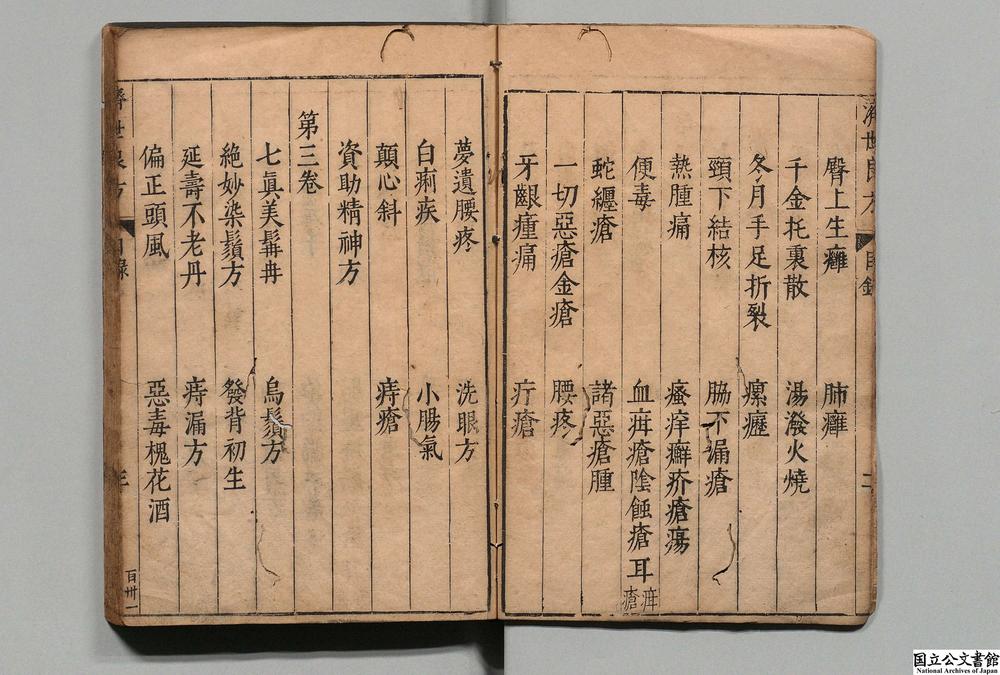 濟世良方 目錄 二
臀上生癰 肺癰
千金托裏散 湯潑火燒
冬月手足折裂 瘰癧
頸下結核 脇下漏瘡
熱腫痛 瘙痒癬疥瘡瘍
便毒 血疳瘡陰蝕瘡耳疳瘡
蛇纏瘡 諸惡瘡腫
一切惡瘡金瘡 腰疼
牙齦瘇痛 疔瘡
夢遺腰疼 洗眼方
白痢疾 小腸氣
顛心斜 痔瘡
資助精神方
第三卷
七眞美髯冉 烏鬚方
絕妙染鬚方 發背初生
延壽不老丹 痔漏方
偏正頭風 惡毒槐花酒
濟世良方 目錄 三
百卅一
国立公文書館
National Archives of Japan